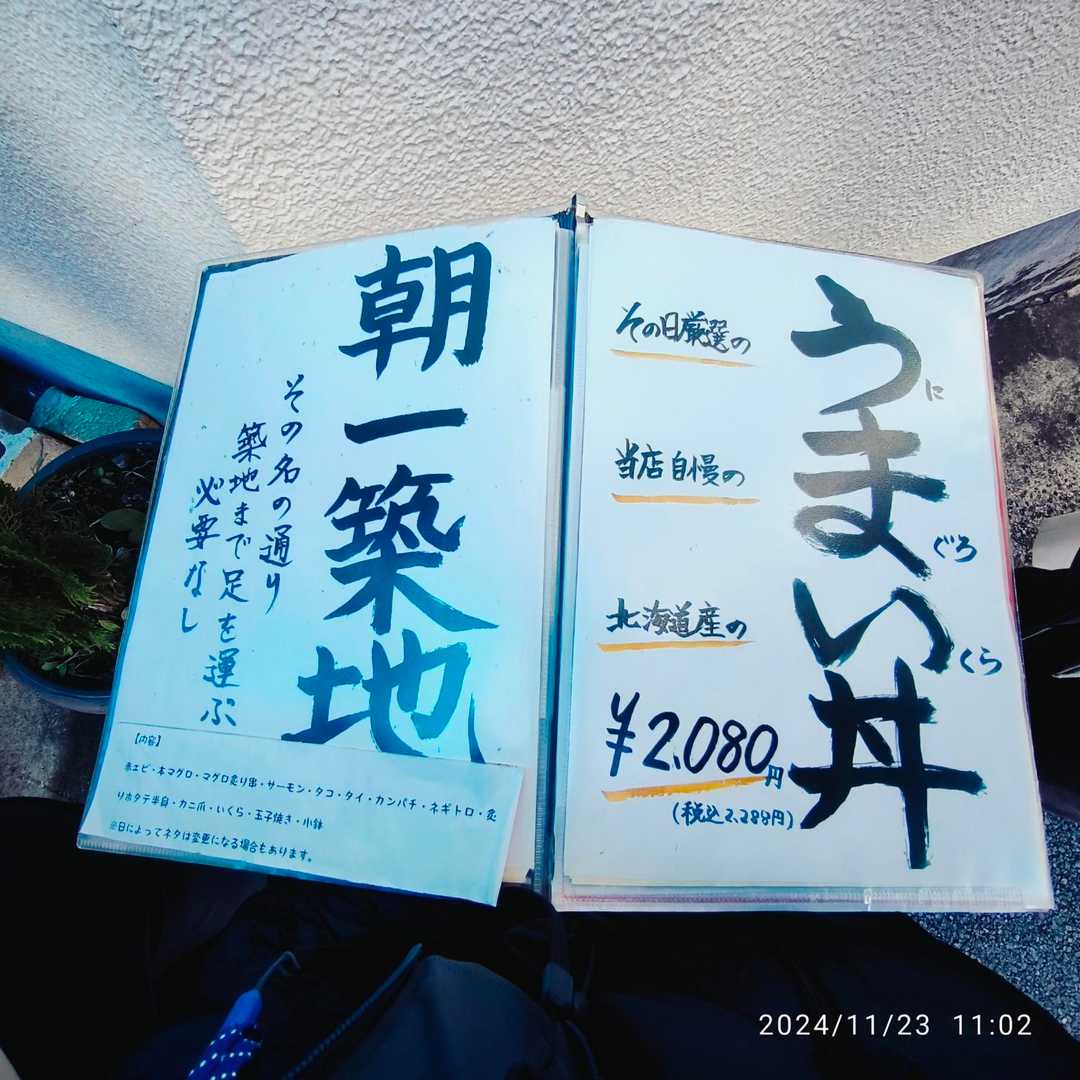 うまい丼
に
ぐろ
くら
その日厳選の
当店自慢の
北海道産の
¥2,080円
(税込2,288円)
朝一築地
その名の通り
築地まで足を運ぶ
必要なし
【内容】
赤エビ・本マグロ・マグロ炙り串・サーモン・タコ・タイ・カンパチ・ネギトロ・炙
りホタテ半身・カニ爪・いくら・玉子焼き・小鉢
※日によってネタは変更になる場合もあります。
2024/11/23 11:02